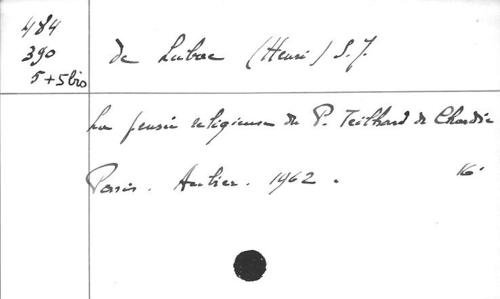 484
390
5+5bis
de Lubac (Henri) S.J.
La pensée religieuse du P. Teilhard de Chardin
Paris. Aubier. 1962. 16°